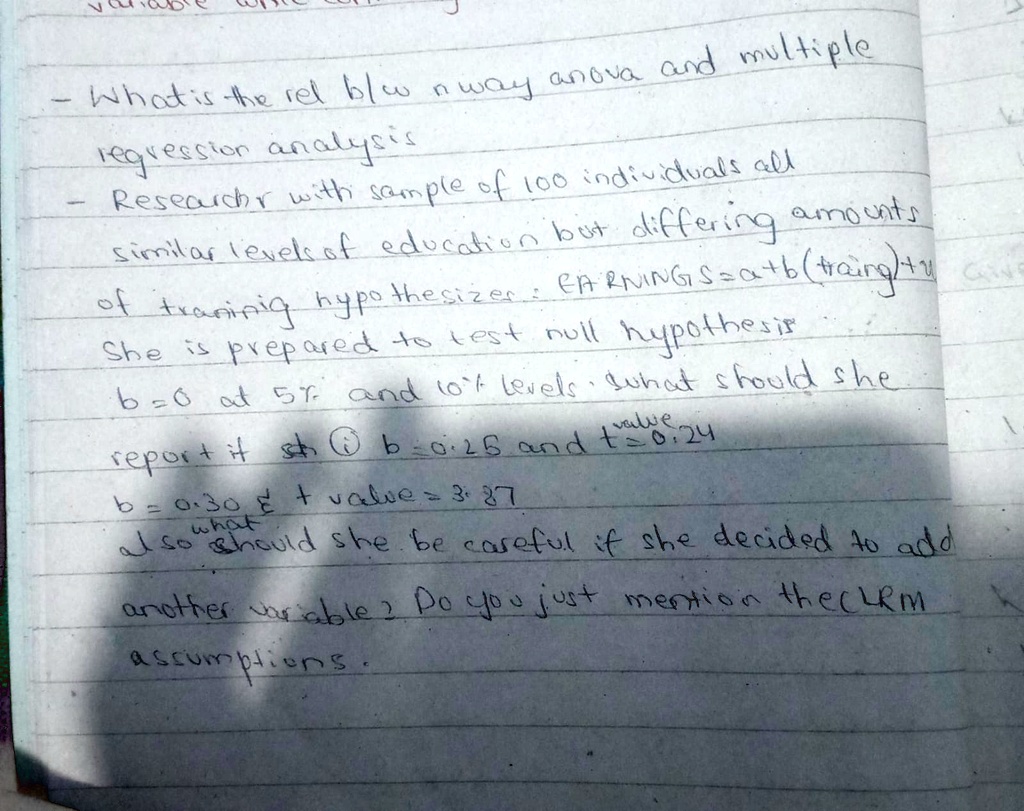 variable while
- What is the rel b/w n way anova and multiple
regression analysis
- Researchr with sample of 100 individuals all
similar levels of education but differing amounts
of traninig hypothesizes : EARNINGS = a+b(traing)+u
She is prepared to test null hypothesis
b=0 at 5% and 10% levels. what should she
report if sh ① b=0.25 and t value = 0.24
b = 0.30 & t value = 3.37
also what should she be careful if she decided to add
another variable? Do you just mention the CLRM
assumptions.